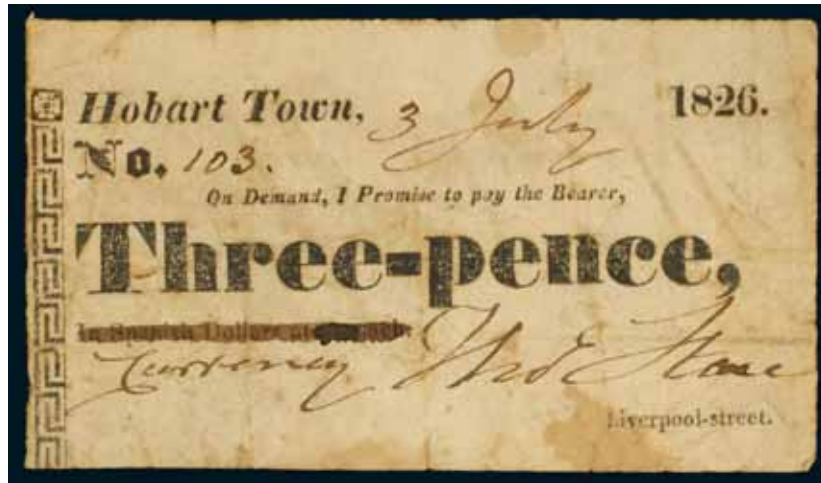 Hobart Town, 3 July 1826.
No. 103.
On Demand, I Promise to pay the Bearer,
Three-pence,
In Spanish Dollars at
Currency Thos
Liverpool-street.